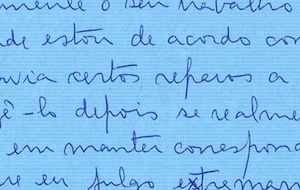 mente o seu trabalho
de estou de acordo con
via certos reparos a
gê-lo depois se realme
em manter correspon
re eu julgo extreman